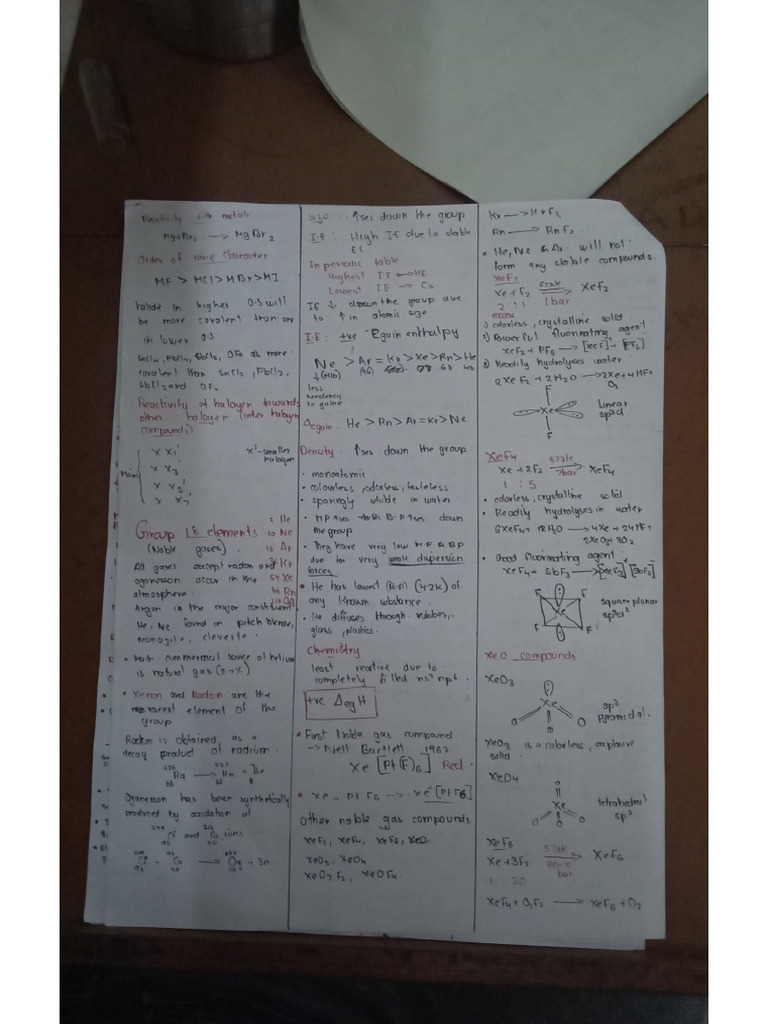 Reactivity with metals
Mg+Br2 → MgBr2
Order of ionic character
MF > MCl > MBr > MI
halide in higher O.S will
be more covalent than one
in lower O.S
covalent than SnCl2, PbCl2,
Reactivity of halogen towards
other halogen (inter halogen
compounds)
x x1'
x'-smaller
halogen
x x3'
x x5'
x x7'
Group 18 elements
(Noble gases).
2 He
10 Ne
18 Ar
36 Kr
54 Xe
86 Rn
118 Og
All gases except radon and
oganesson occur in the
atmosphere.
Argon is the major constituent
He, Ne found in pitch blende,
monazite, cleveite.
commercial source of helium
is natural gas
• Xenon and Radon are the
rarest element of the
group
Radon is obtained, as a
decay product of radium.
226 Ra → 222 Rn + 4 He
88 86 2
Oganesson has been synthetically
produced by
ions
→ Og + 3n
Size : ↑ses down the group
I.E : High I.E due to stable
E.C
In periodic table
Highest IE → He
Lowest IE → Cs
IE ↓ down the group due
to ↑ in atomic size
I.E: +ve Egain enthalpy
Ne > Ar = Kr > Xe > Rn > He
less
tendency
to gain e
Δegain : He > Rn > Ar = Kr > Ne
Density : ↑ses down the group
• monoatomic
• colourless, odorless, tasteless
• sparingly soluble in water
down
the group
• They have very low M.P & B.P
due to very weak dispersion
forces
• He has lowest (B.P) (4.2K) of
any known substance.
• He diffuses through rubber,
glass, plastics.
Chemistry
least reactive due to
completely filled ns2 np6.
+ve ΔegH
• First Noble gas compound
→ Neil Bartlett 1962
Xe [Pt(F)6] Red.
• Xe + PtF6 → Xe+[PtF6]
Other noble gas compounds
XeF2, XeF4, XeF6, XeO
XeO3, XeO4
XeO2F2, XeOF4
Kr → KrF2
Rn → RnF2
• He, Ne & Ar will not
form any stable compounds.
XeF2
Xe + F2 673K → XeF2
2 : 1 1bar
excess
1) colorless, crystalline solid
2) Powerful fluorinating agent
XeF2 + PF5 → [XeF]+[PF6]-
3) Readily hydrolyses water
2XeF2 + 2H2O → 2Xe + 4HF +
O2
F
Xe
F
Linear
sp3d
XeF4
Xe + 2F2 873K 7bar → XeF4
1 : 5
• colorless, crystalline solid
• Readily hydrolyses in water
6XeF4 + 12H2O → 4Xe + 24HF +
2XeO3 + 3O2
• Good fluorinating agent
F
F
Xe
F
F
square planar
sp3d2
XeO compounds
XeO3
Xe
O
O
O
sp3
pyramidal.
XeO3 is a colorless, explosive
solid.
XeO4
O
Xe
O
O
O
tetrahedral
sp3
XeF6
Xe + 3F2 573K 60-70 bar → XeF6
1 : 20
XeF4 + O2F2 → XeF6 + O2